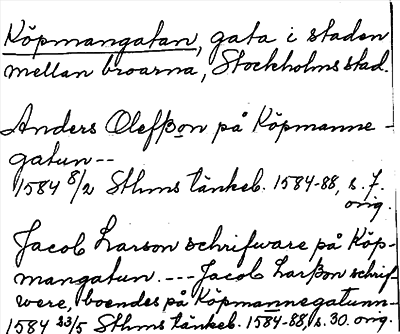 Köpmangatan, gata i staden
mellan broarna, Stockholms stad.
Anders Olefßon på Köpmanne-
gatun--
1584 8/2 Sthms tänkeb. 1584-88, s. 7.
orig.
Jacob Larson schrifware på Köp-
mangatun. --- Jacob Larßon schrif
were, boendes på Köpmannegatunn-
1584 23/5 Sthms tänkeb. 1584-88, s. 30. orig.